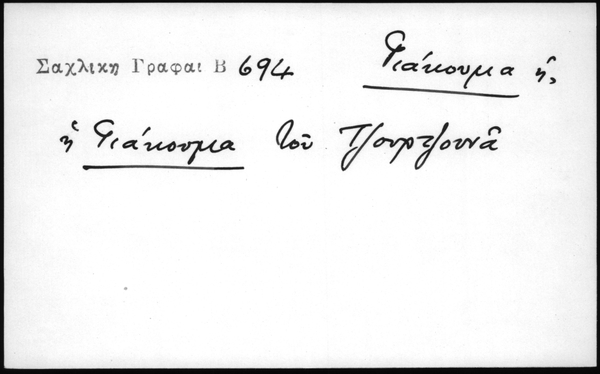 Σαχλικη Γραφαι Β 694 Γιάκουμα ἡ,
ἡ Γιάκουμα τοῦ Τζουρτζουνᾶ